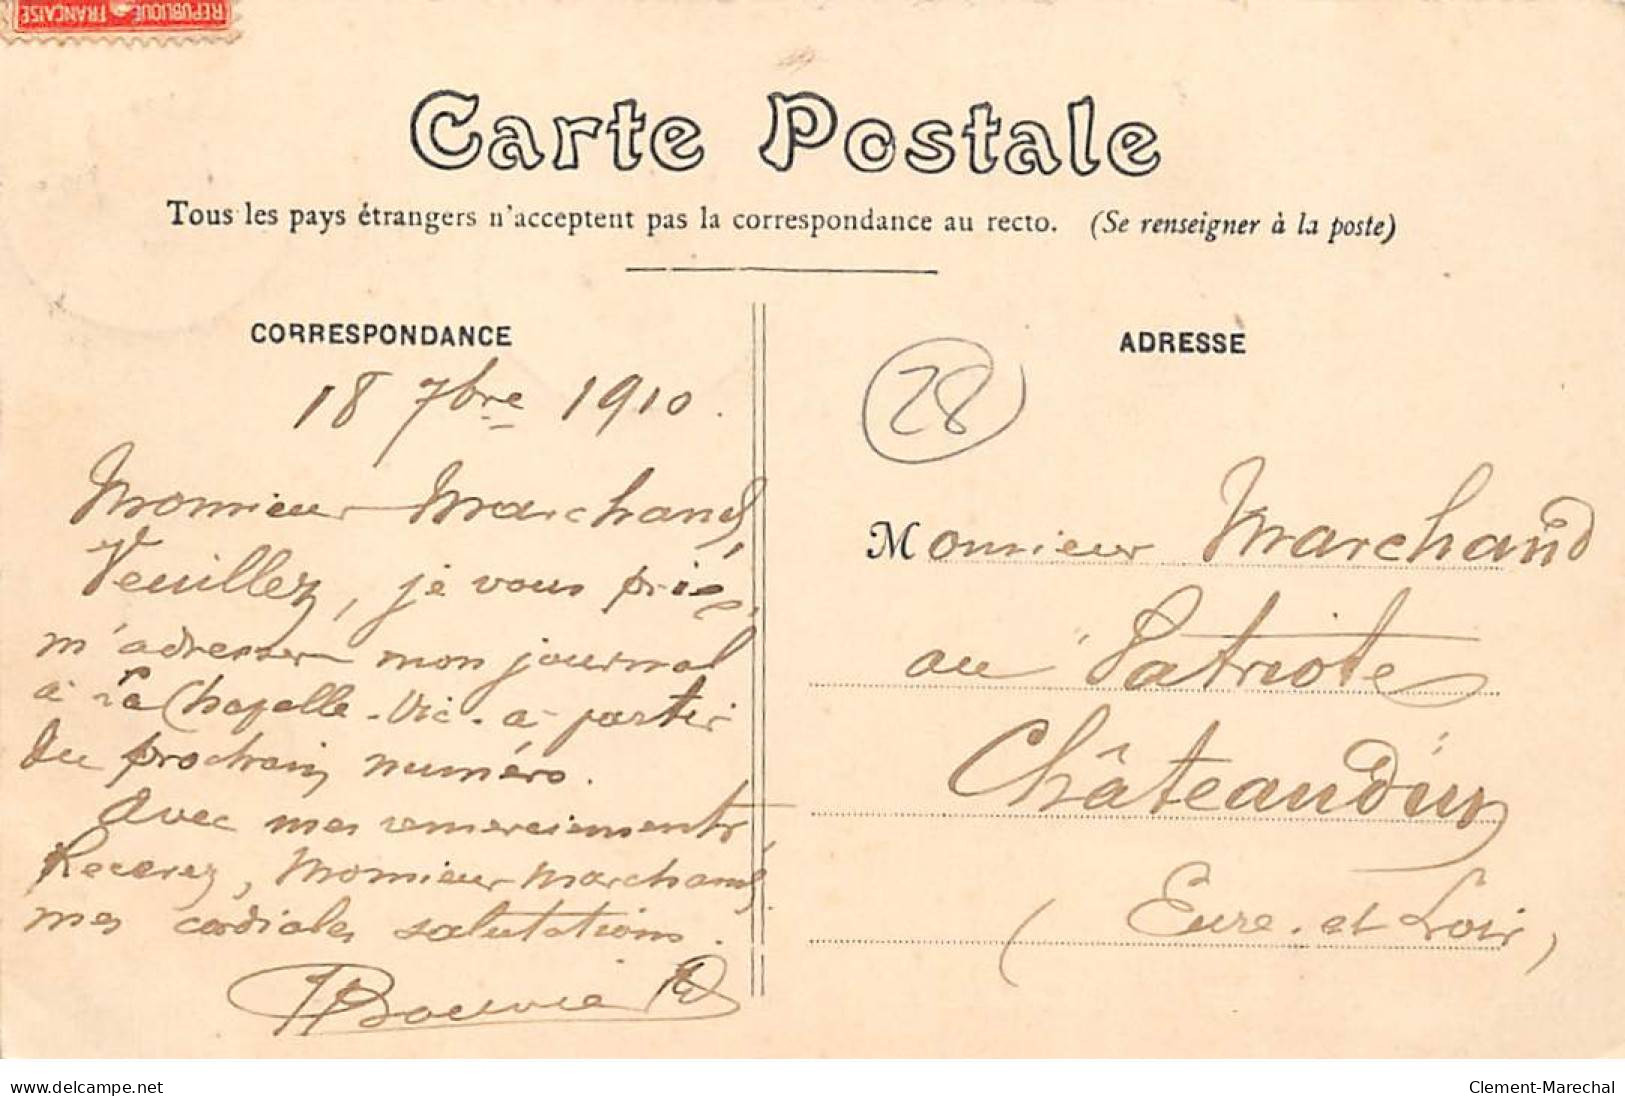 REPUBLIQUE FRANÇAISE
Carte Postale
Tous les pays étrangers n'acceptent pas la correspondance au recto. (Se renseigner à la poste)
CORRESPONDANCE
18 7bre 1910.
Monsieur Marchand,
Veuillez, je vous prie,
m'adresser mon journal
à La Chapelle-Vic. à partir
du prochain numéro.
Avec mes remerciements,
Recevez, Monsieur Marchand,
mes cordiales salutations.
ADRESSE
28
Monsieur Marchand
au Patriote
Châteaudun
(Eure-et-Loir)
www.delcampe.net
Clement-Marechal